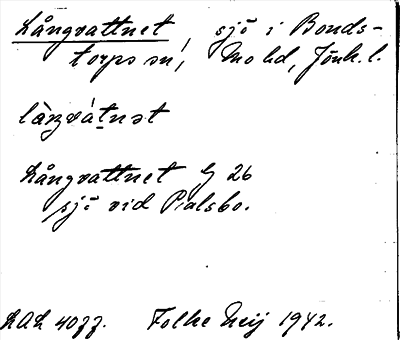 Långvattnet, sjö i Bonds-
torps sn, Mo hd, Jönk. l.
làŋvátnət
Långvattnet G 26
sjö vid Palsbo.
LAL 4077. Folke Neij 1942.